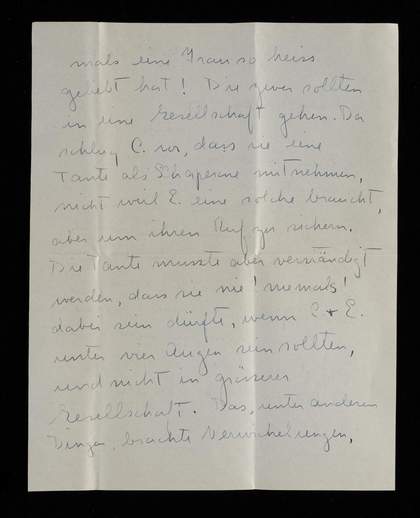 mals eine Frau so heiss
geliebt hat! Die zwei sollten
in eine Gesellschaft gehen. Da
schlug C. vor, dass sie eine
Tante als Chaperone mitnehmen,
nicht weil E. eine solche braucht,
aber um ihren Ruf zu sichern.
Die Tante musste aber verständigt
werden, dass sie nie! niemals!
dabei sein dürfte, wenn C + E.
unter vier Augen sein sollten,
und nicht in grösserer
Gesellschaft. Das, unter anderen
Dingen, brachte Verwickelungen,